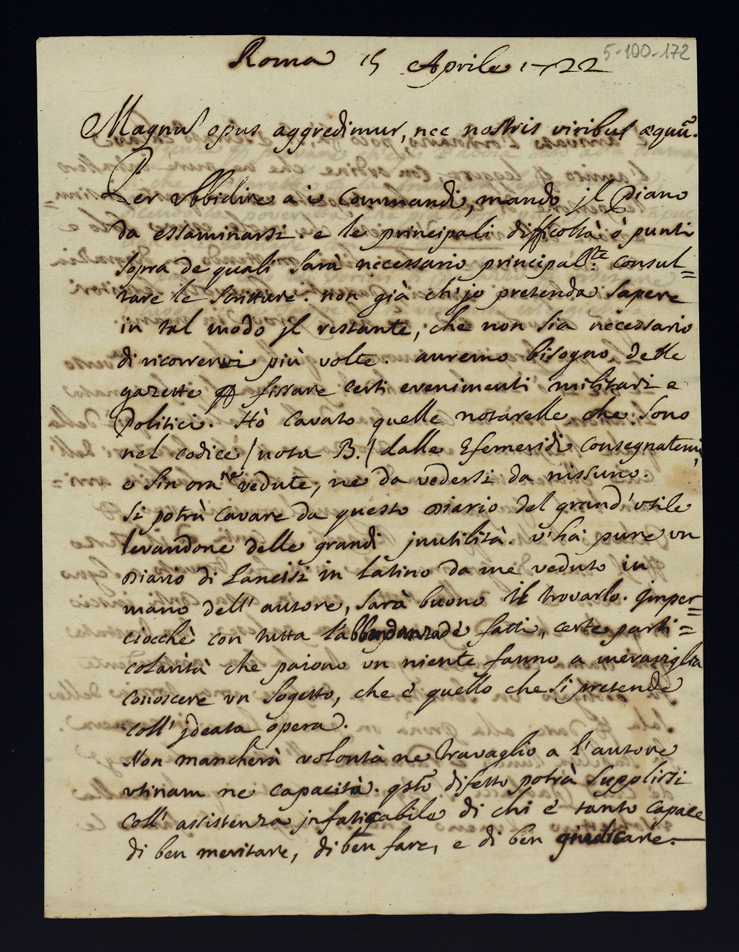 5-100-172
Roma 15 Aprile 1722
Magnus opus aggredimur, nec nostris viribus æquũ.
Per ubbidire a i Commandi, mando jl Piano
da essaminarsi. e le principali difficoltà ò punti
sopra de quali sarà necessario principalṁte consul=
tare le scritture. non già ch'jo pretenda sapere
in tal modo jl restante, che non sia necessario
di ricorrervi più volte. auremo bisogno delle
gazette per fissare certi evenimenti militari e
Politici. Hò cavato quelle notarelle che sono
nel codice / nota B. / dalle Efemeridi consegnatemi,
e sin ora nè vedute, ne da vedersi da nissuno.
si potrà cavare da questo Diario del grand'utile
levandone delle grandi jnutilità. v'hà pure un
Diario di Lancisi in Latino da me veduto in
mano dell'autore, sarà buono il trovarlo. jmper=
ciocchè con tutta l'abbondanza de fatti, certe parti=
colarità che paiono un niente fanno a meraviglia
conoscere un sogetto, che è quello che si pretende
coll'jdeata opera.
Non mancherà volontà ne travaglio a l'autore
utinam ne capacità. qsto difetto potrà supplirsi
coll'assistenza jnfaticabile di chi è tanto capace
di ben meritare, di ben fare, e di ben giudicare.